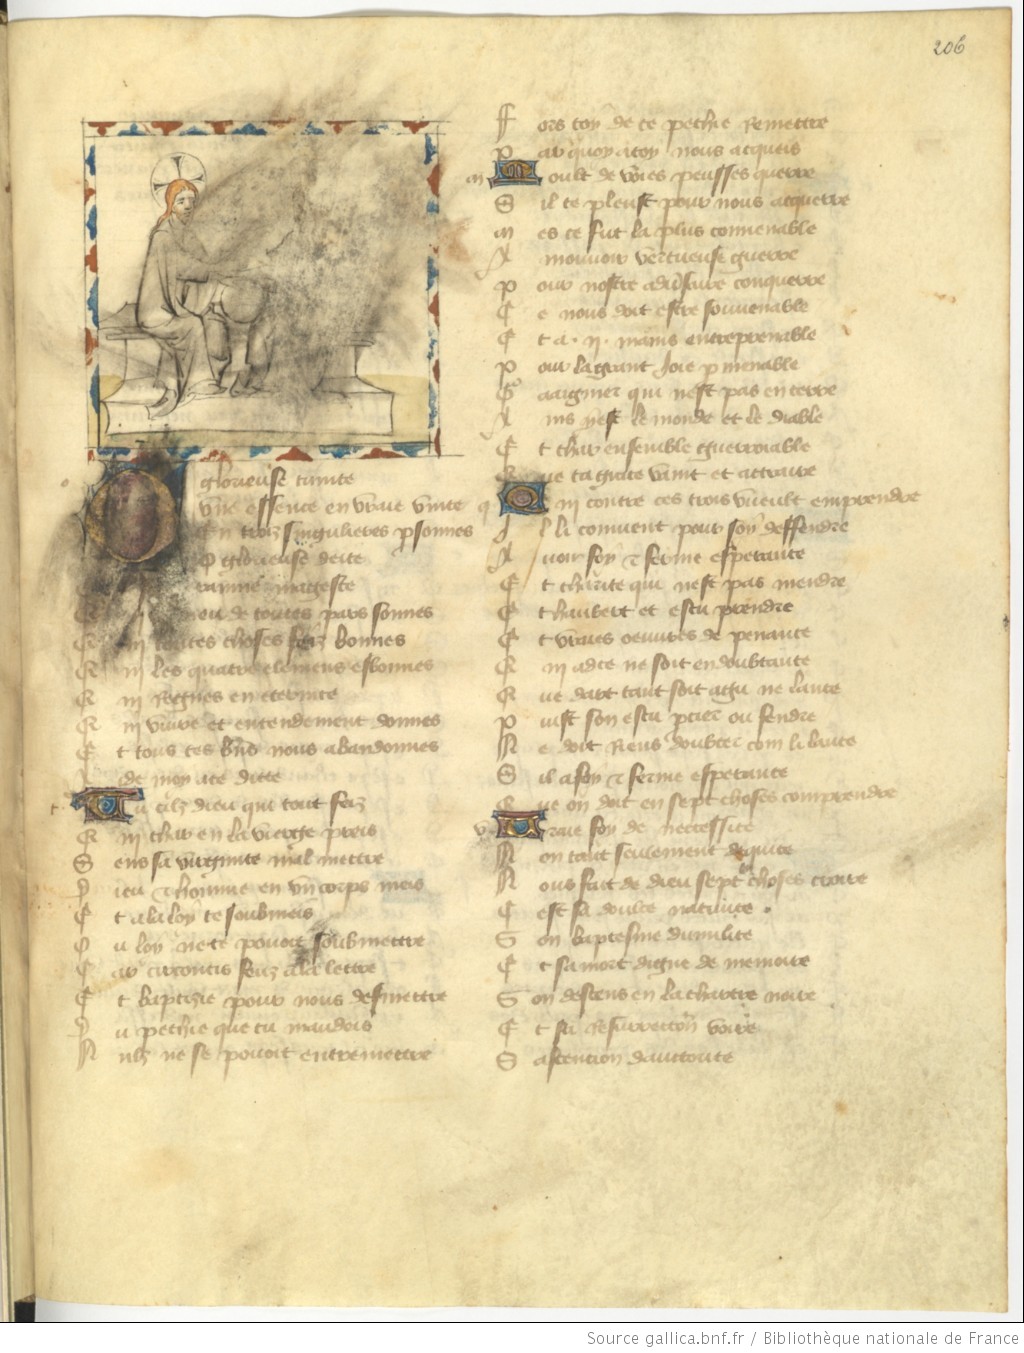 206
O glorieuse trinite
vne essence en vraie vnite
En troiz singulieres psonnes
O glorieuse deite
mageste
de toutes pars sonnes
Qui toutes choses feiz bonnes
Qui les quatre elemens esbonnes
Qui regnes en eternite
Qui viure et entendement donnes
Et tous tes bns nous abandonnes
de moy ace dicte
Tu cilz dieu qui tout feiz
Qui char en la vierge preis
Sens sa virginite mal mettre
Dieu et homme en vn corps meis
Et a la loy te soubmeis
Ou loy ne te pouoit soubmettre
Car circoncis feiz a la lettre
Et baptizie pour nous desmettre
Du pechie que tu maudeis
Nulz ne se pouoit entremettre
Fors toy de ce pechie remettre
Par quoy a toy nous acqueis
Moult de voies peusses querre
Sil te pleust pour nous acquerre
Mes ce fut la plus conuenable
Amouuoir vertueuse guerre
Pour nostre aduersaire conquerre
Ce nous doit estre souuenable
Et a .ii. mains entreprenable
Pour la grant joie pmenable
Gaaignier qui nest pas en terre
Ains nest le monde et le diable
Et char ensemble guerroiable
Que ta grace vaint et atterre
Qui contre ces trois vueult emprendre
Il li conuient pour soy deffendre
Auoir foy et ferme esperance
Et charite qui nest pas mendre
Et haubert et escu prendre
Et vraies oeuures de penance
Qui adce ne soit en doubtance
Que dart tant soit agu ne lance
Puist son escu pcier ou fendre
Ne doit riens doubter com li lance
Sil a foy et ferme esperance
Que on doit en sept choses comprendre
Vraie foy de necessite
Non tant seulement dequite
Nous fait de dieu sept choses croire
Cest sa doulce natiuite
Son baptesme dumilite
Et sa mort digne de memoire
Son descens en la chartre noire
Et sa resurrection voire
Sascention dauctorite
Source gallica.bnf.fr / Bibliothèque nationale de France